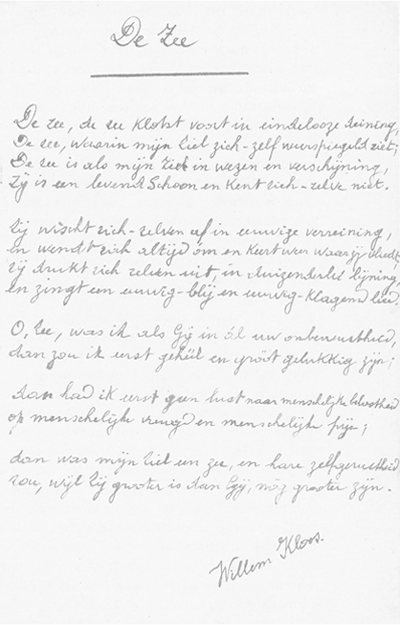 De Zee
De zee, de zee klotst voort in eindelooze deining,
De zee, waarin mijn Ziel zich-zelf weerspiegeld ziet;
De zee is als mijn Ziel in wezen en verschijning,
Zij is een levend Schoon en kent zich-zelve niet.
Zij wischt zich-zelven af in eeuwige verreining,
en wendt zich altijd óm en keert weer waar zij vliedt,
zij drukt zich zelven uit, in duizenderlei lijning,
en zingt een eeuwig-blij en eeuwig-klagend lied.
O, Zee, was ik als Gij in ál uw onbewustheid,
dan zou ik eerst gehéél en gróót gelukkig zijn;
dan had ik eerst geen lust naar menschelijke belustheid
op menschelijke vreugd en menschelijke pijn;
dan was mijn Ziel een zee, en hare zelfgerustheid
zou, wijl Zij grooter is dan Gij, nóg grooter zijn.
Willem Kloos.